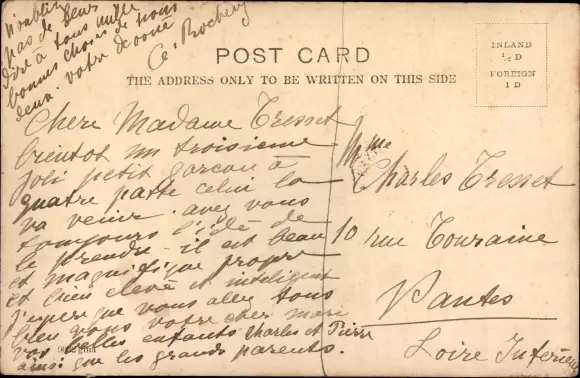 n'oubliez
pas de leurs
dire à tous mille
bonnes choses de nous
deux. votre dévoué
POST CARD
THE ADDRESS ONLY TO BE WRITTEN ON THIS SIDE
INLAND
½ D
FOREIGN
1 D
Chere Madame Tresset
bientot un troisieme
joli petit garcon à
quatre patte celui la
va venir. avez vous
toujours l'idé de
le prendre - il est beau
et magnifique propre
et bien elevé et inteligent
j'espere que vous allez tous
bien vous votre cher mari
vos belles enfants Charles et Pierre
ainsi que les grands parents.
Mme
Charles Tresset
10 rue Touraine
Nantes
Loire Inferieure